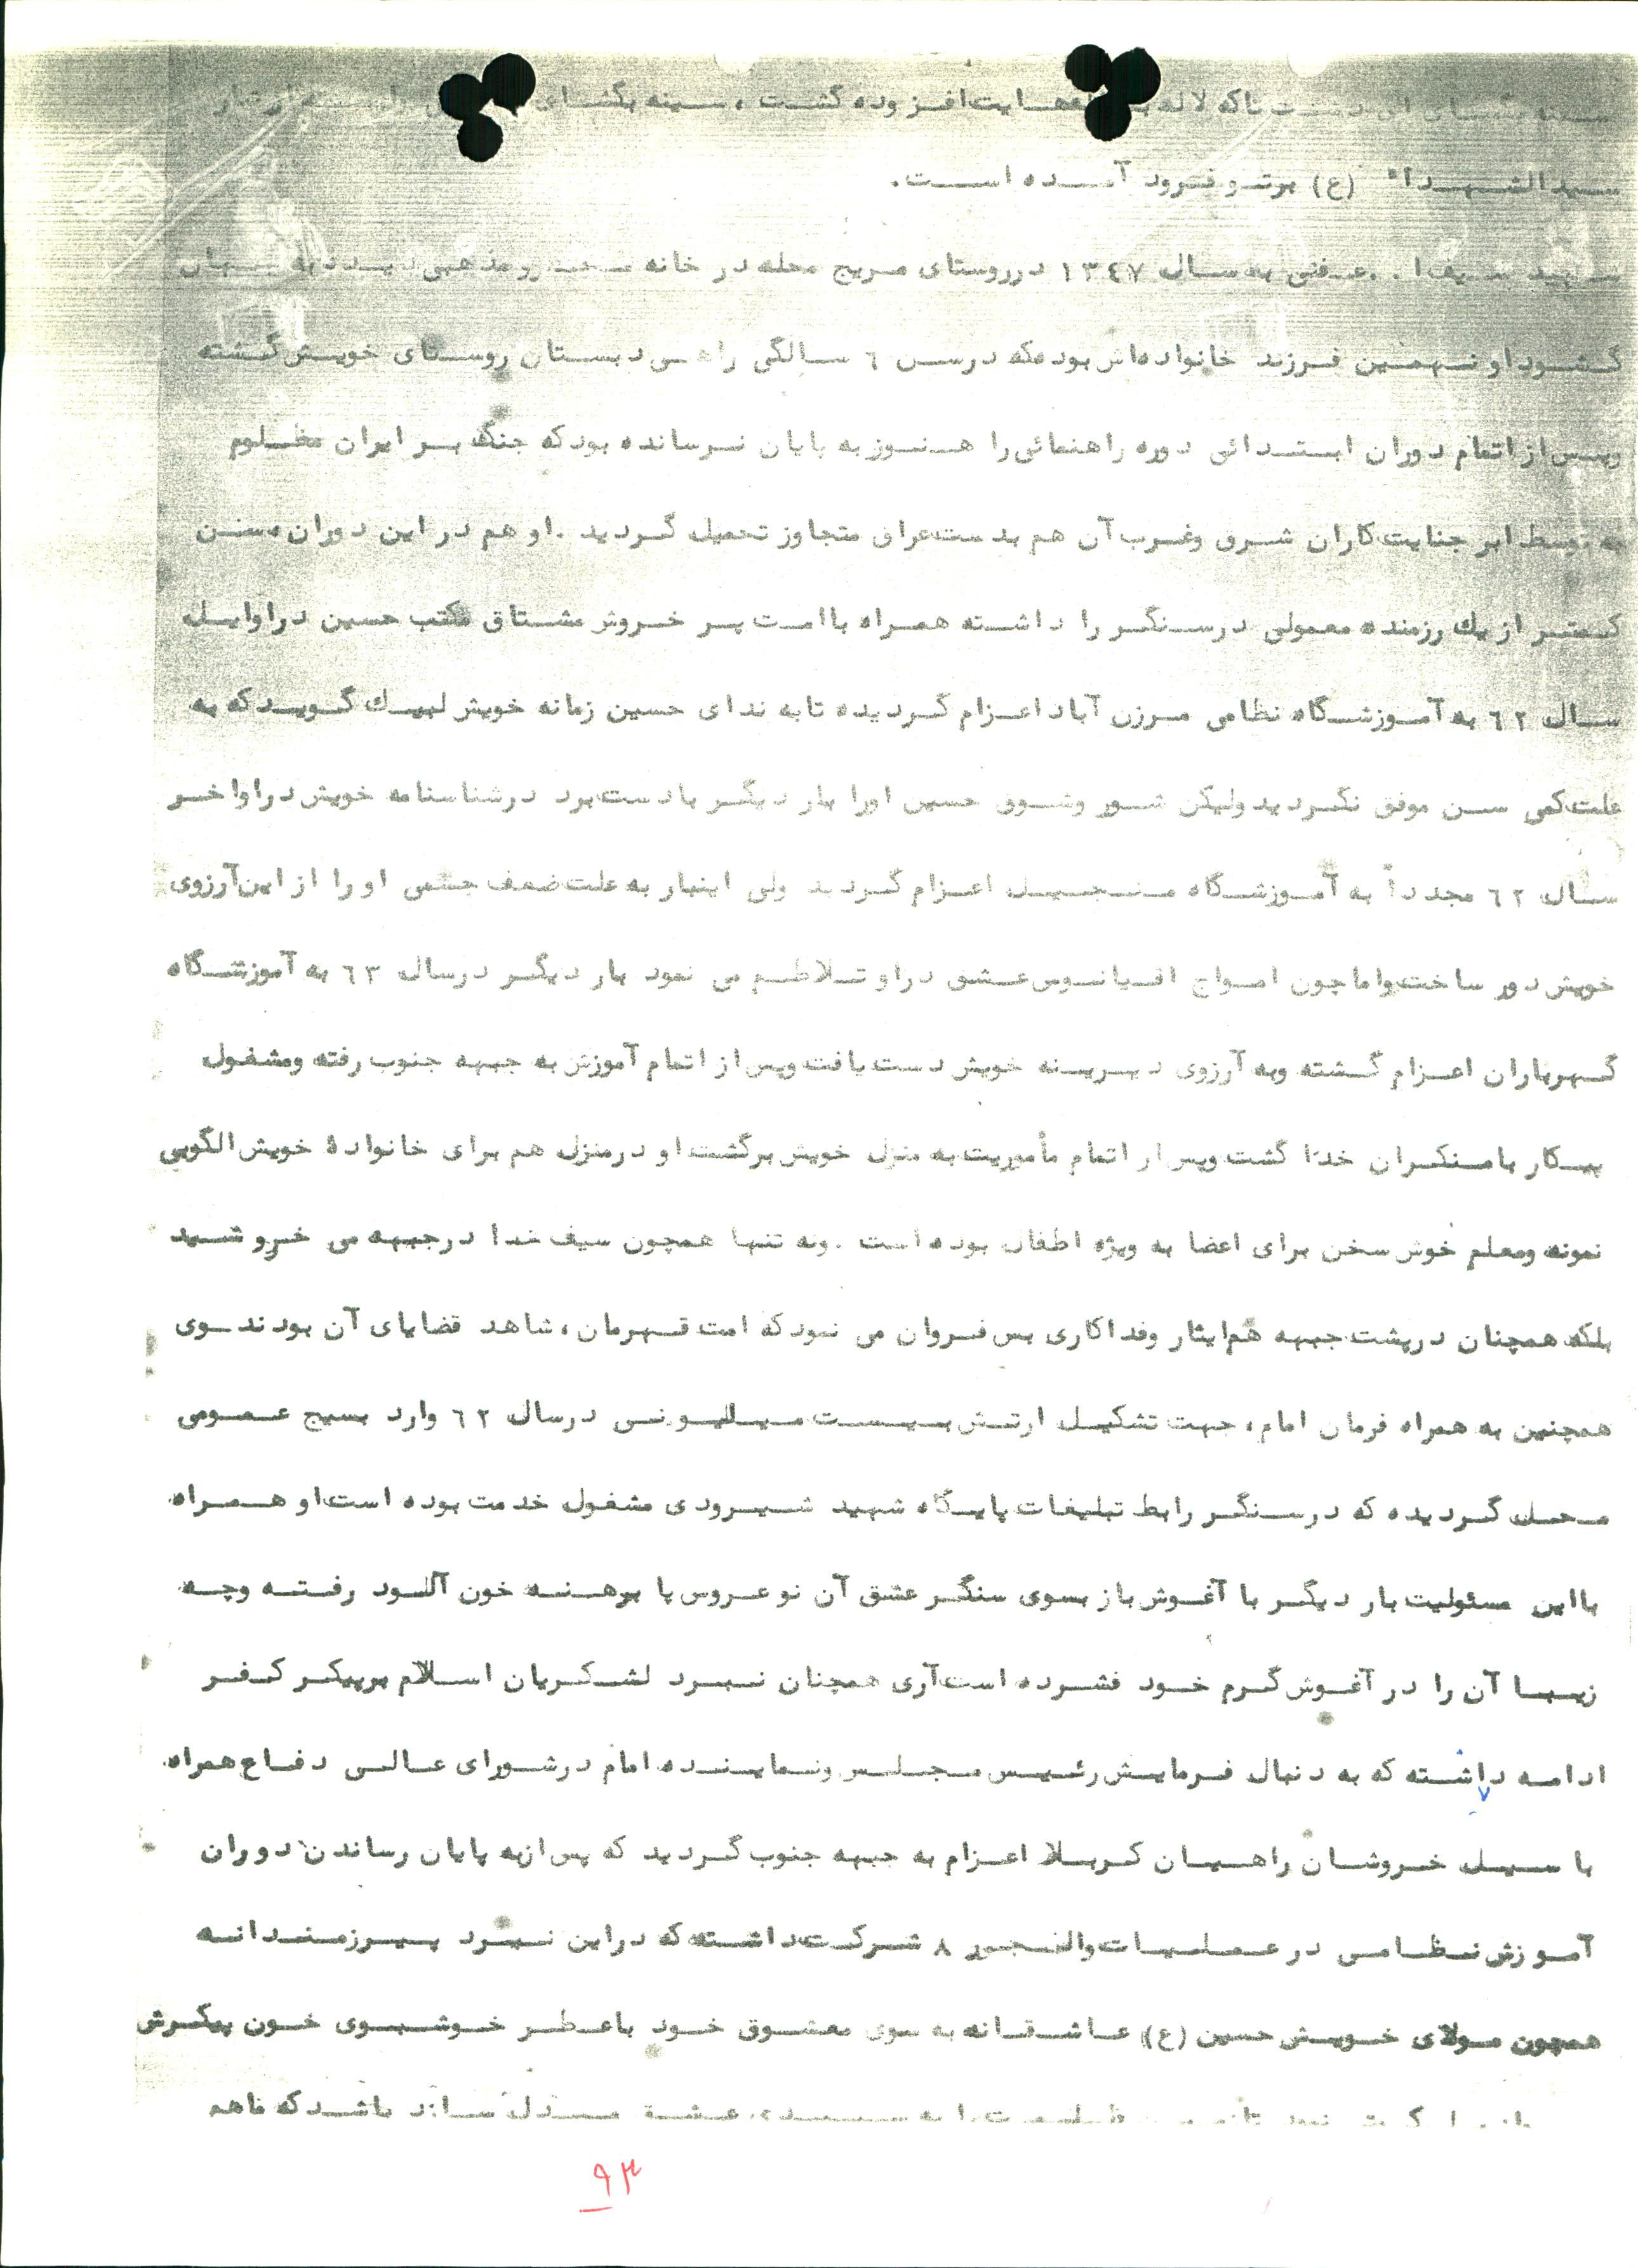 که لاله افزوده گشت ، سینه بگشای
سیدالشهداء (ع) برتو فرود آمده است.
به سال ۱۳٤۷ درروستای مریج محله در خانه مذهبی دیده به جهان
گشود او نهمین فرزند خانواده‌اش بوده‌که درسن ٦ سالگی راهی دبستان روستای خویش گشته
وپس از اتمام دوران ابتدائی دوره راهنمائی را هنوز به پایان نرسانده بود که جنگ بر ایران مظلوم
به توسط ابر جنایت کاران شرق وغرب آن هم بدست عراق متجاوز تحمیل گردید .او هم در این دوران ، سن
کمتر از یك رزمنده معمولی درسنگر را داشته همراه باامت پر خروش مشتاق مکتب حسین دراوایل
سال ٦۲ به آموزشگاه نظامی مرزن آباد اعزام گردیده تا به ندای حسین زمانه خویش لبیك گوید که به
علت کمی سن موفق نگردید ولیکن شور وشوق حسین اورا بار دیگر بادست برد درشناسنامه خویش دراواخر
سال ٦۲ مجدداً به آموزشگاه منجیل اعزام گردید ولی اینبار به علت ضعف جسمی او را از این آرزوی
خویش دور ساخت واما چون امواج اقیانوس عشق دراو تلاطم می نمود بار دیگر درسال ٦۳ به آموزشگاه
گهرباران اعزام گشته وبه آرزوی دیرینه خویش دست یافت وپس از اتمام آموزش به جبهه جنوب رفته ومشغول
پیکار بامنکران خدا گشت وپس از اتمام مأموریت به منزل خویش برگشت او درمنزل هم برای خانوادهٔ خویش الگویی
نمونه ومعلم خوش سخن برای اعضا به ویژه اطفال بوده است .ونه تنها همچون سیف خدا درجبهه می خروشید
بلکه همچنان درپشت جبهه هم ایثار وفداکاری بس فروان می نمود که امت قهرمان ، شاهد قضایای آن بودند وی
همچنین به همراه فرمان امام ، جهت تشکیل ارتش بیست میلیونی درسال ٦۲ وارد بسیج عمومی
محل گردیده که درسنگر رابط تبلیغات پایگاه شهید شیرودی مشغول خدمت بوده است او همراه
بااین مسئولیت بار دیگر با آغوش باز بسوی سنگر عشق آن نو عروس پا برهنه خون آلود رفته وچه
زیبا آن را در آغوش گرم خود فشرده است آری همچنان نبرد لشکریان اسلام برپیکر کفر
ادامه داشته که به دنبال فرمایش رئیس مجلس ونماینده امام درشورای عالی دفاع همراه
با سیل خروشان راهیان کربلا اعزام به جبهه جنوب گردید که پس ازبه پایان رساندن دوران
آموزش نظامی در عملیات والفجر ۸ شرکت داشته که دراین نبرد پیرزمندانه
همچون مولای خویش حسین (ع) عاشقانه به سوی معشوق خود باعطر خوشبوی خون پیکرش
را به عشق باشد که ماهم
۹۳